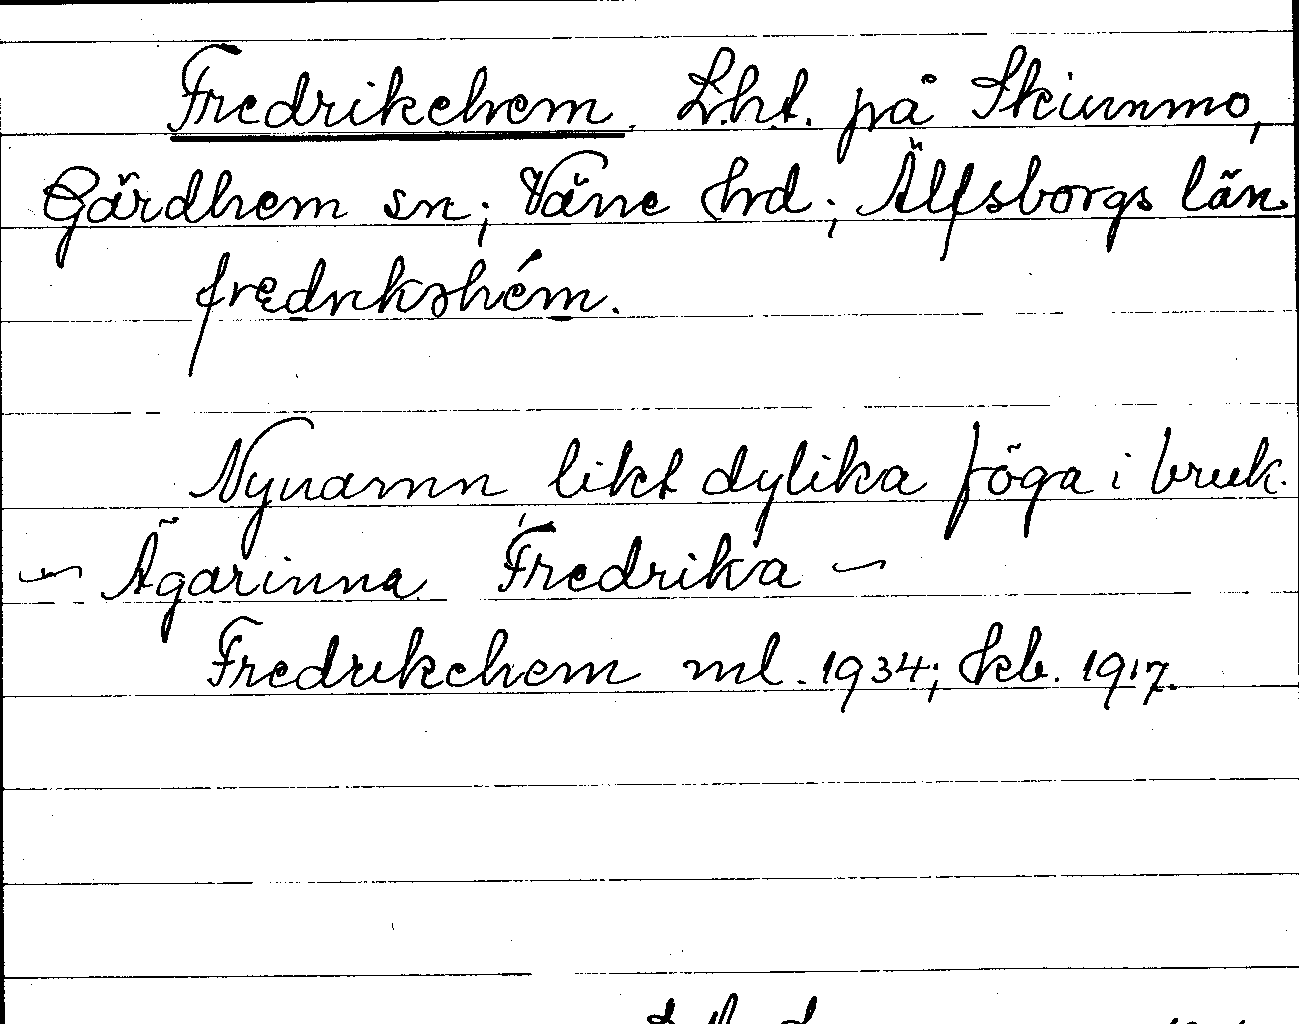 Fredrikehem. L.ht. på Skiunmo,
Gärdhem sn; Väne hd; Älfsborgs län.
fredrikshém.
Nynamn likt dylika föga i bruk.
Ägarinna Fredrika
Fredrikehem ml. 1934; kb. 1917.